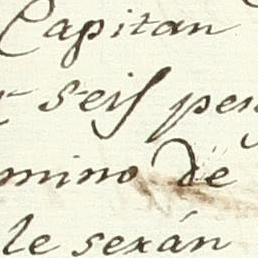 Capitan
seis pe
mino de
le serán